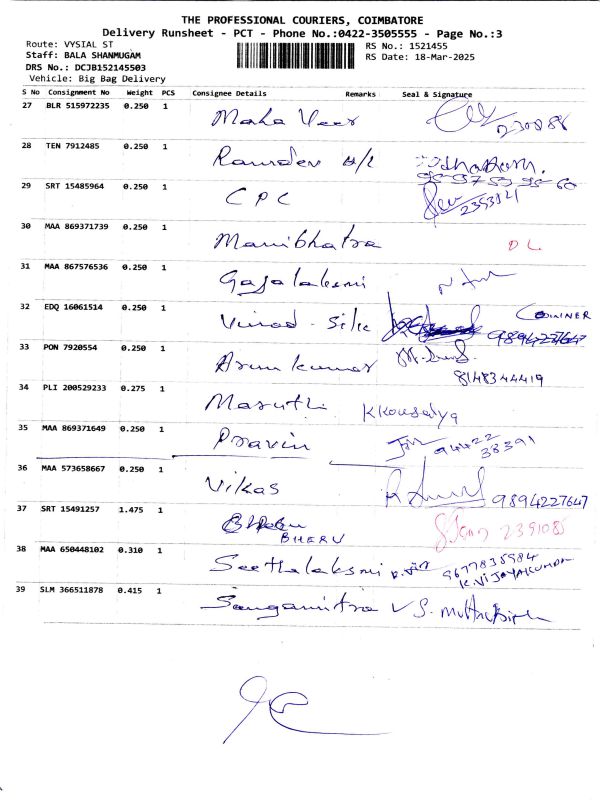 THE PROFESSIONAL COURIERS, COIMBATORE
Delivery Runsheet - PCT - Phone No.:0422-3505555 - Page No.:3
Route: VYSIAL ST RS No.: 1521455
Staff: BALA SHANMUGAM RS Date: 18-Mar-2025
DRS No.: DCJB152145503
Vehicle: Big Bag Delivery
S No Consignment No Weight PCS Consignee Details Remarks Seal & Signature
27 BLR 515972235 0.250 1 Maha Veer 230886
28 TEN 7912485 0.250 1 Ramdev H/L
29 SRT 15485964 0.250 1 CPC
30 MAA 869371739 0.250 1 Manibhatra DL
31 MAA 867576536 0.250 1 Gajalaksmi
32 EDQ 16061514 0.250 1 Vinod - Silk 9894227647
33 PON 7920554 0.250 1 Arun kumar 8148344419
34 PLI 200529233 0.275 1 Maruthi K Kousalya
35 MAA 869371649 0.250 1 Pravin 94422 38391
36 MAA 573658667 0.250 1 Vikas 9894227647
37 SRT 15491257 1.475 1 BHERU 2391085
38 MAA 650448102 0.310 1 Seethalaksmi 9677835984
K.VIJAYAKUMAR
39 SLM 366511878 0.415 1 Sangamitra